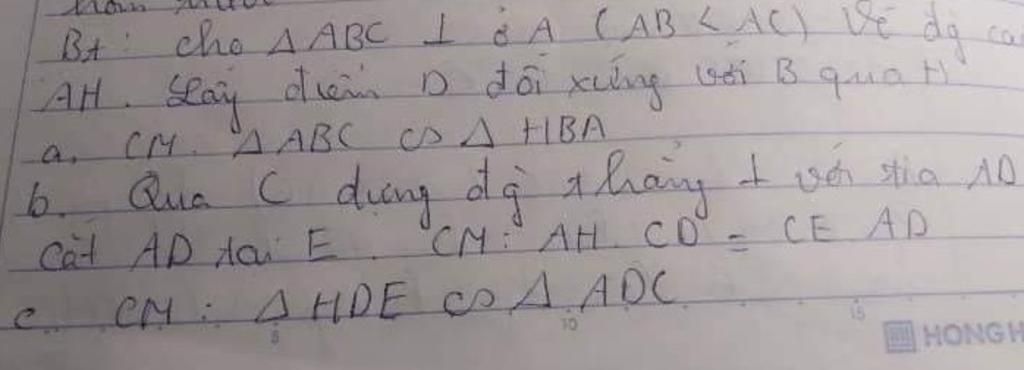 Bt: Cho Δ ABC ⊥ ở A (AB < AC) Vẽ đg cao
AH. Lấy điểm D đối xứng với B qua H
a. CM. Δ ABC ∽ Δ HBA
b. Qua C dựng đg thẳng ⊥ với tia AD
Cắt AD tại E. CM: AH. CD = CE AD
c CM: Δ HDE ∽ Δ ADC
5 10 15
HONG H